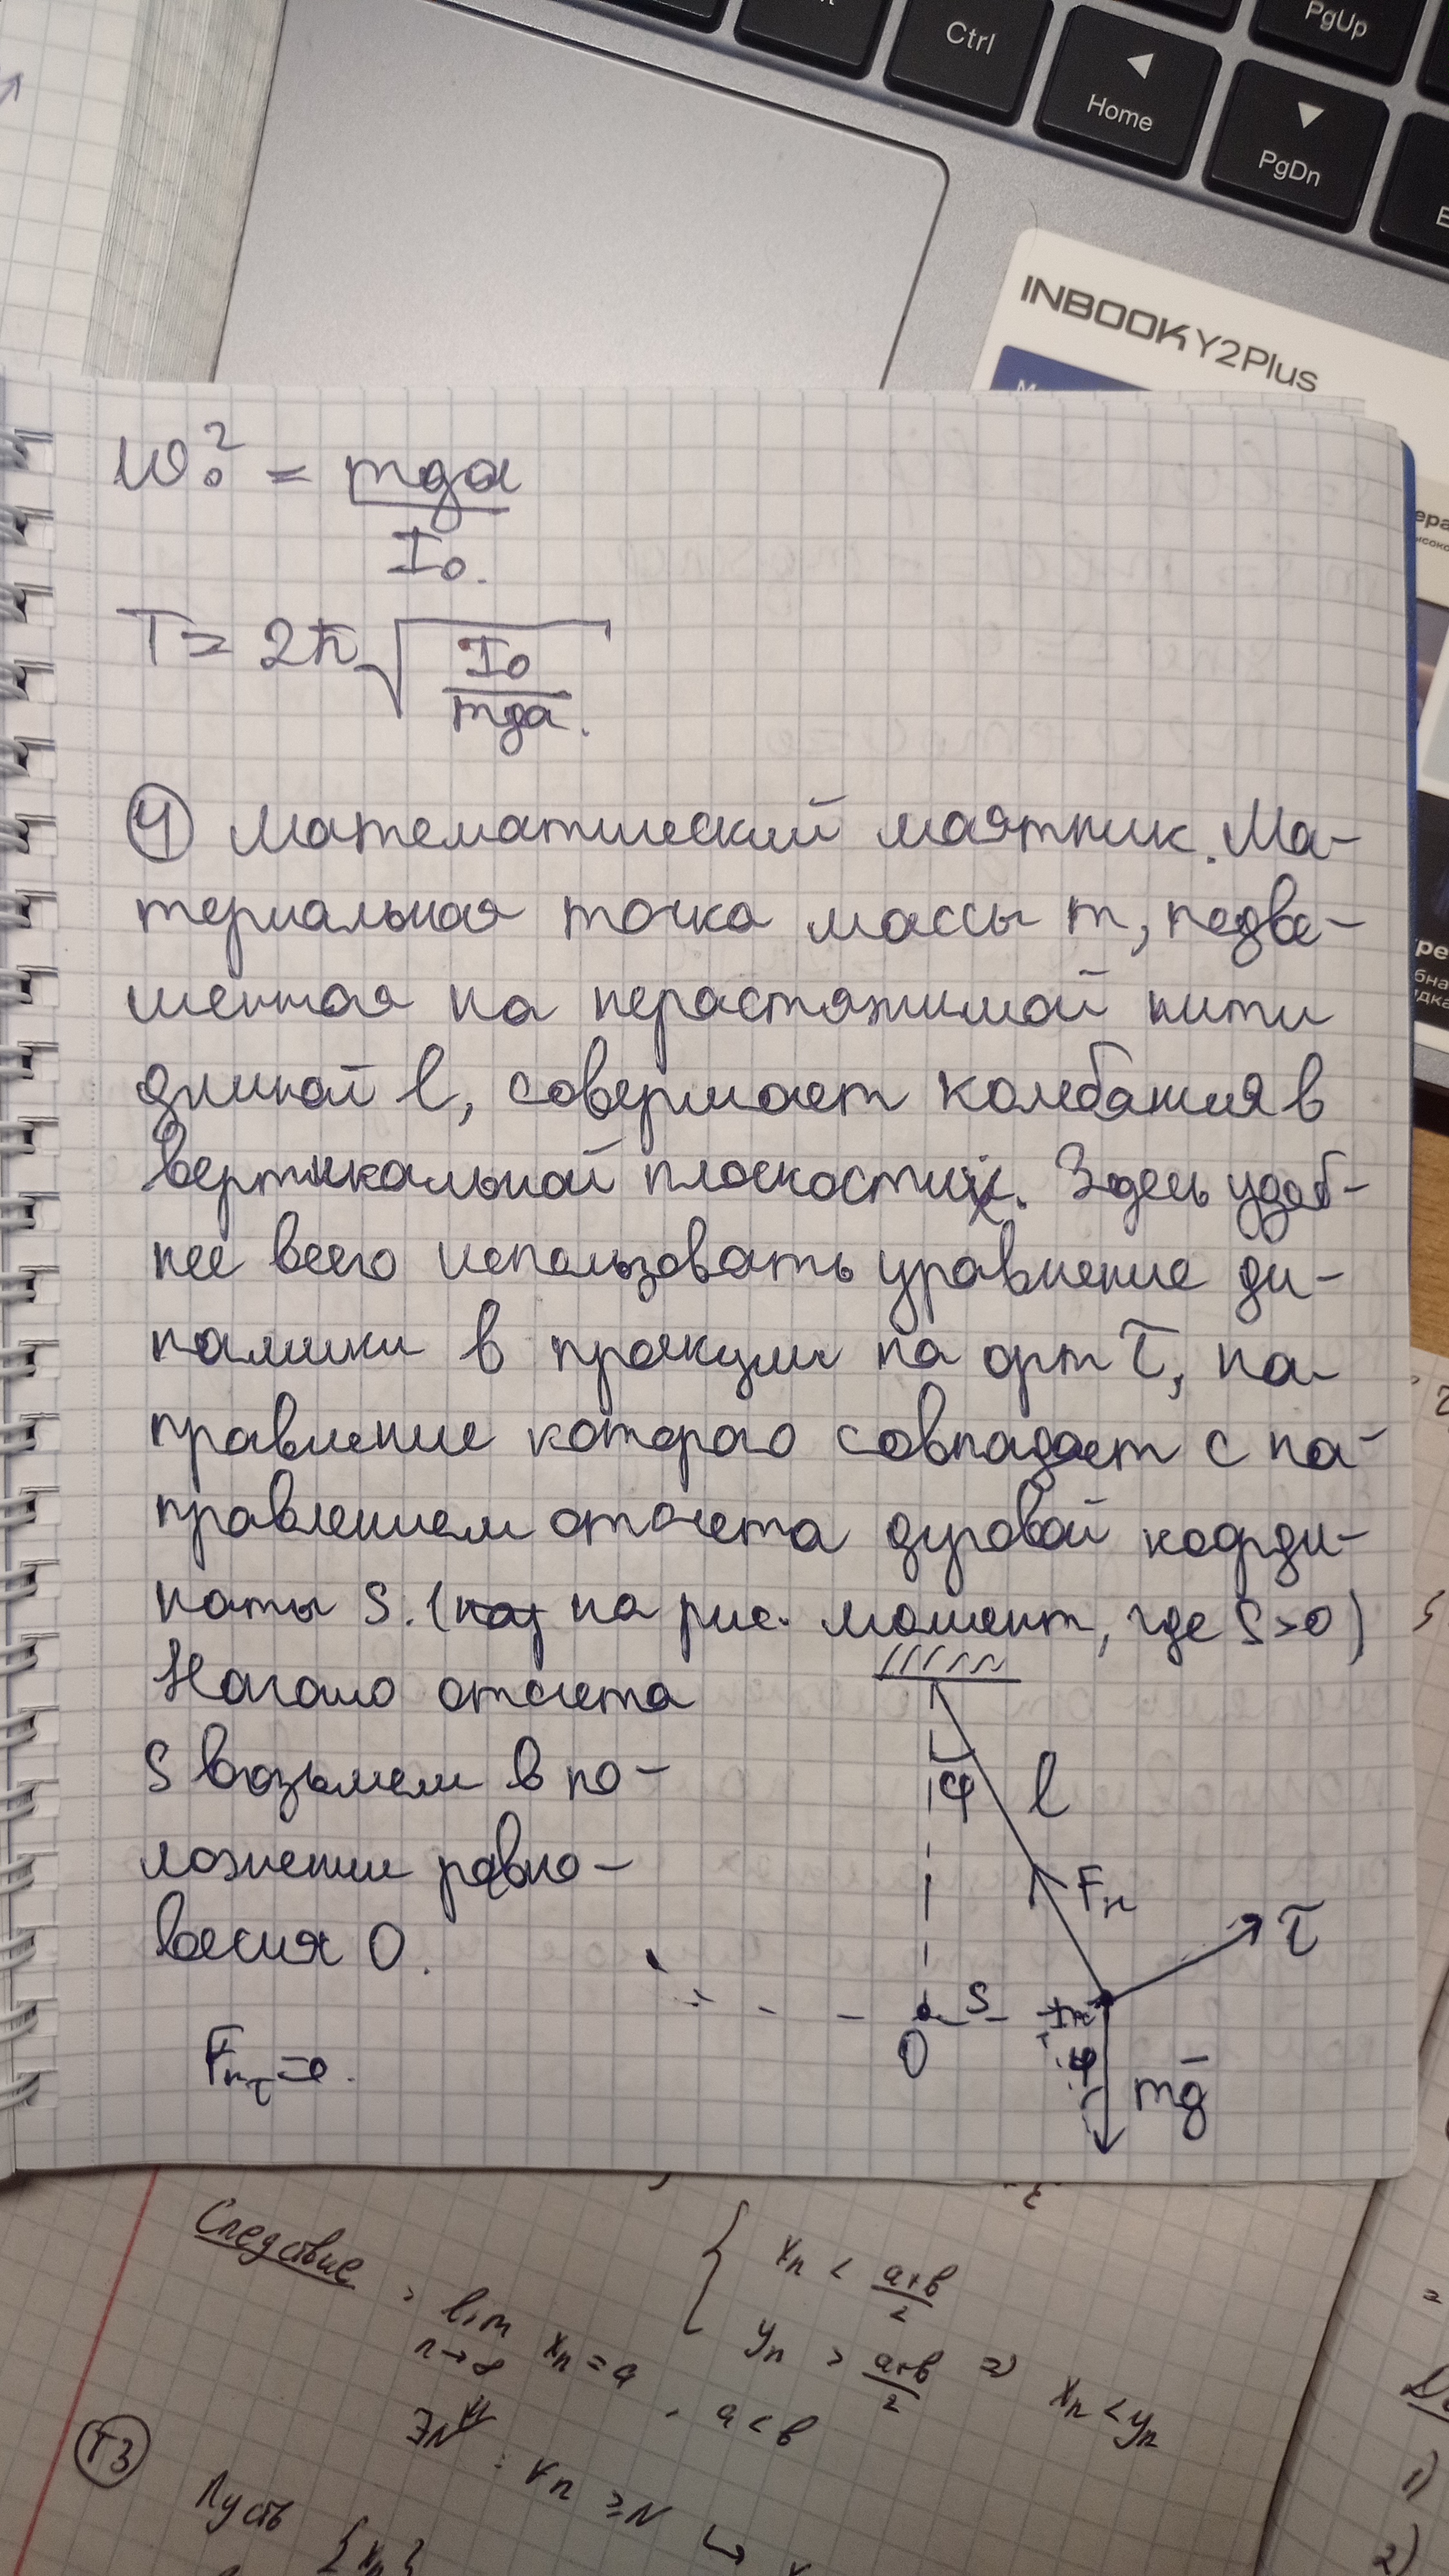 Ctrl
Home
PgUp
PgDn
INBOOK Y2Plus
ω₀² = mga / I₀.
T = 2π √(I₀ / mga).
④ Математический маятник. Ма-
териальная точка массы m, подве-
шенная на нерастяжимой нити
длиной l, совершает колебания в
вертикальной плоскости. Здесь удоб-
нее всего использовать уравнение ди-
намики в проекции на орт τ, на-
правление которого совпадает с на-
правлением отсчета дуговой коорди-
наты S. (на рис. момент, где S>0)
Начало отсчета
S возьмем в по-
ложении равно-
весия O.
φ l
Fн
τ
S
O
m
φ
mg̅
Fнτ=0.
Следствие
lim xₙ = a
n→∞
, a < b
{ xₙ < a+b / 2
yₙ > a+b / 2 ⇒ xₙ < yₙ
∃N : ∀n ≥ N ↪
T3
Пусть {xₙ}
1)
2)